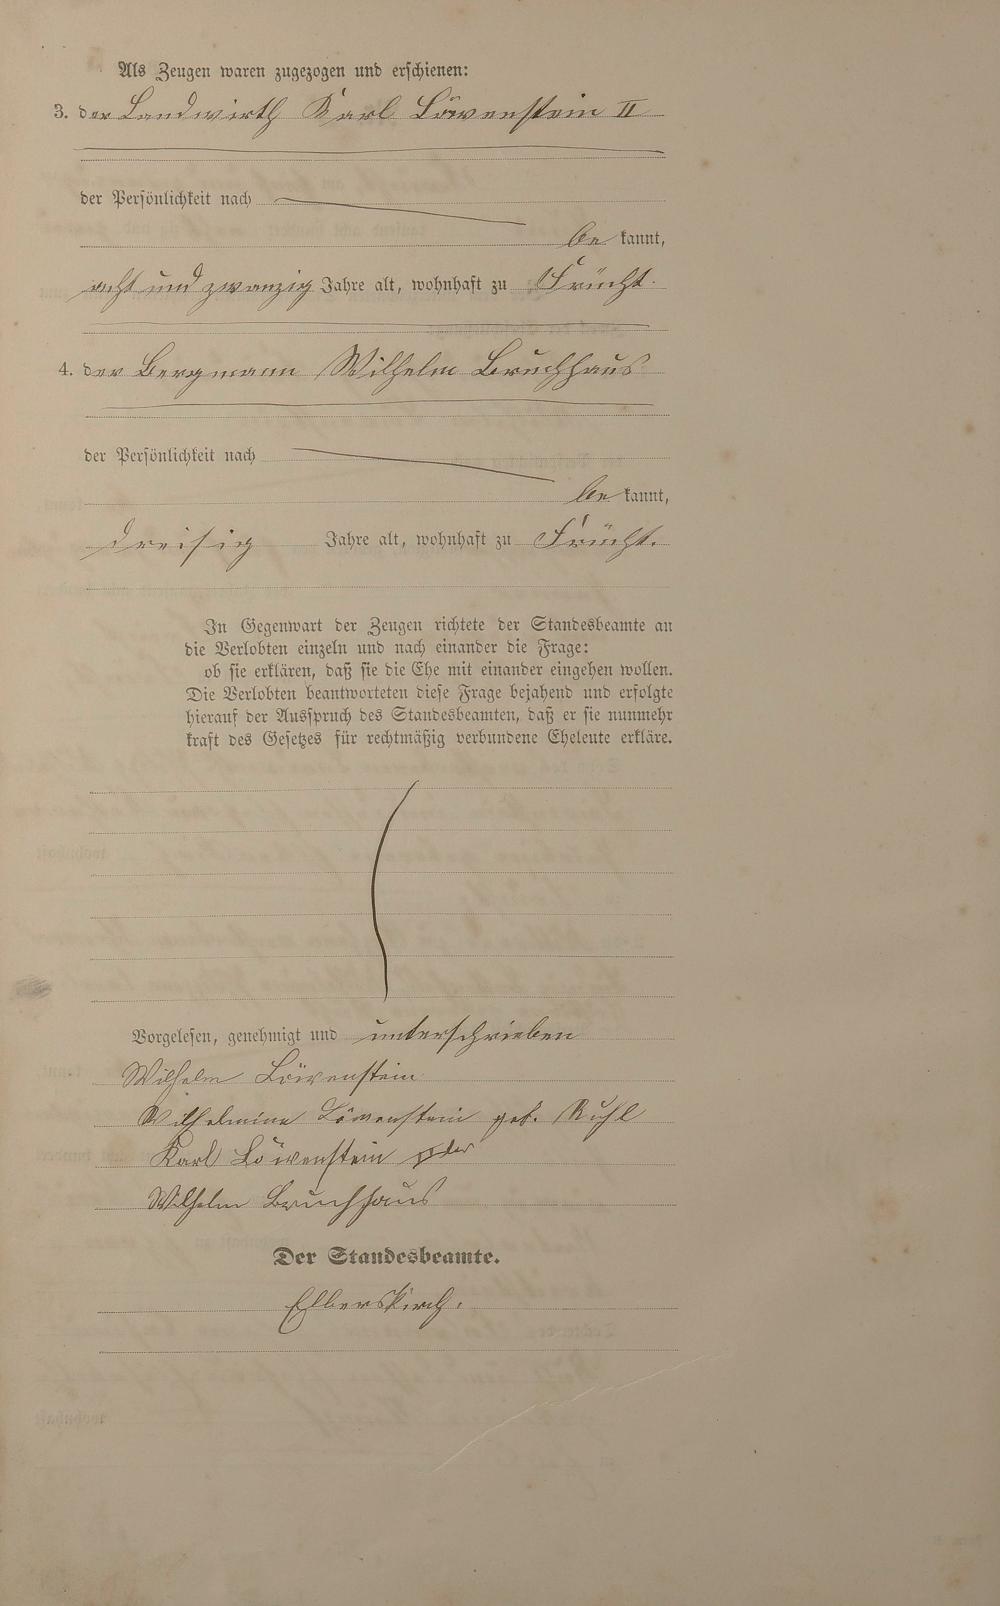 Als Zeugen waren zugezogen und erschienen:
3. der Landwirth Karl Löwenstein II
der Persönlichkeit nach
be kannt,
acht und zwanzig Jahre alt, wohnhaft zu Frücht.
4. der Bergmann Wilhelm Bruchhaus
der Persönlichkeit nach
be kannt,
dreisig Jahre alt, wohnhaft zu Frücht.
In Gegenwart der Zeugen richtete der Standesbeamte an
die Verlobten einzeln und nach einander die Frage:
ob sie erklären, daß sie die Ehe mit einander eingehen wollen.
Die Verlobten beantworteten diese Frage bejahend und erfolgte
hierauf der Ausspruch des Standesbeamten, daß er sie nunmehr
kraft des Gesetzes für rechtmäßig verbundene Eheleute erkläre.
Vorgelesen, genehmigt und unterschrieben
Wilhelm Löwenstein
Wilhelmine Löwenstein geb. Ruhl
Karl Löwenstein
Wilhelm Bruchhaus
Der Standesbeamte.
Elberskirch.